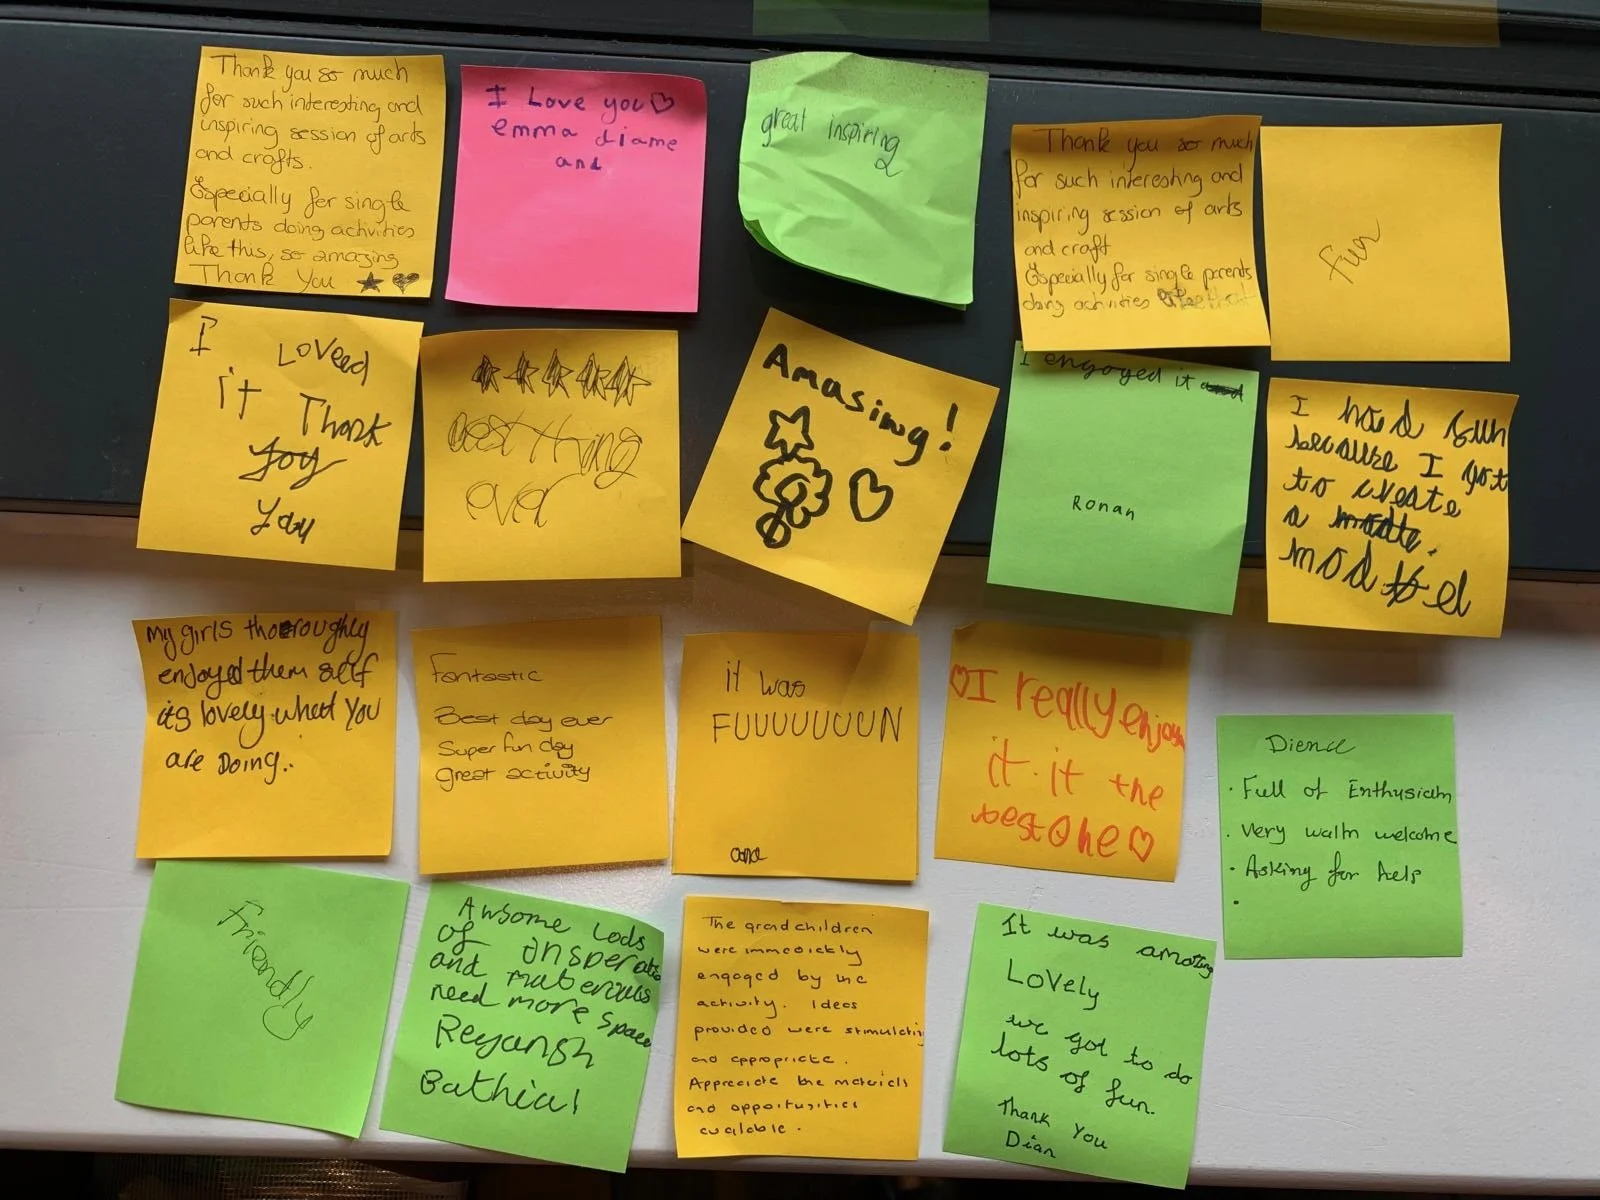 Thank you so much
for such interesting and
inspiring session of arts
and crafts.
Especially for single
parents doing activities
like this, so amazing
Thank You
I Love you
emma diame
and
great inspiring
Thank you so much
for such interesting and
inspiring session of arts
and craft
Especially for single parents
doing activities
fun
I Loveed
it Thank
you
best thing
ever
Amasing!
I engoyed it
Ronan
I had fun
because I got
to create
a
mod el
My girls thoroughly
enjoyed them self
its lovely what you
are Doing..
Fantastic
Best day ever
Super fun day
Great activity
it was
FUUUUUUUN
I really enjoy
it. it the
best one
Dience
· Full of Enthusiasm
· Very walm welcome
· Asking for help
·
Friendly
Awsome Lods
of
and
need more space
Reyansh
Bathia!
The grandchildren
were immedickly
engaged by the
activity. Ideas
provided were stimulating
and appropriate.
Appreciate the materials
and opportunities
available.
It was amazing
Lovely
we got to do
lots of fun.
Thank You
Dian